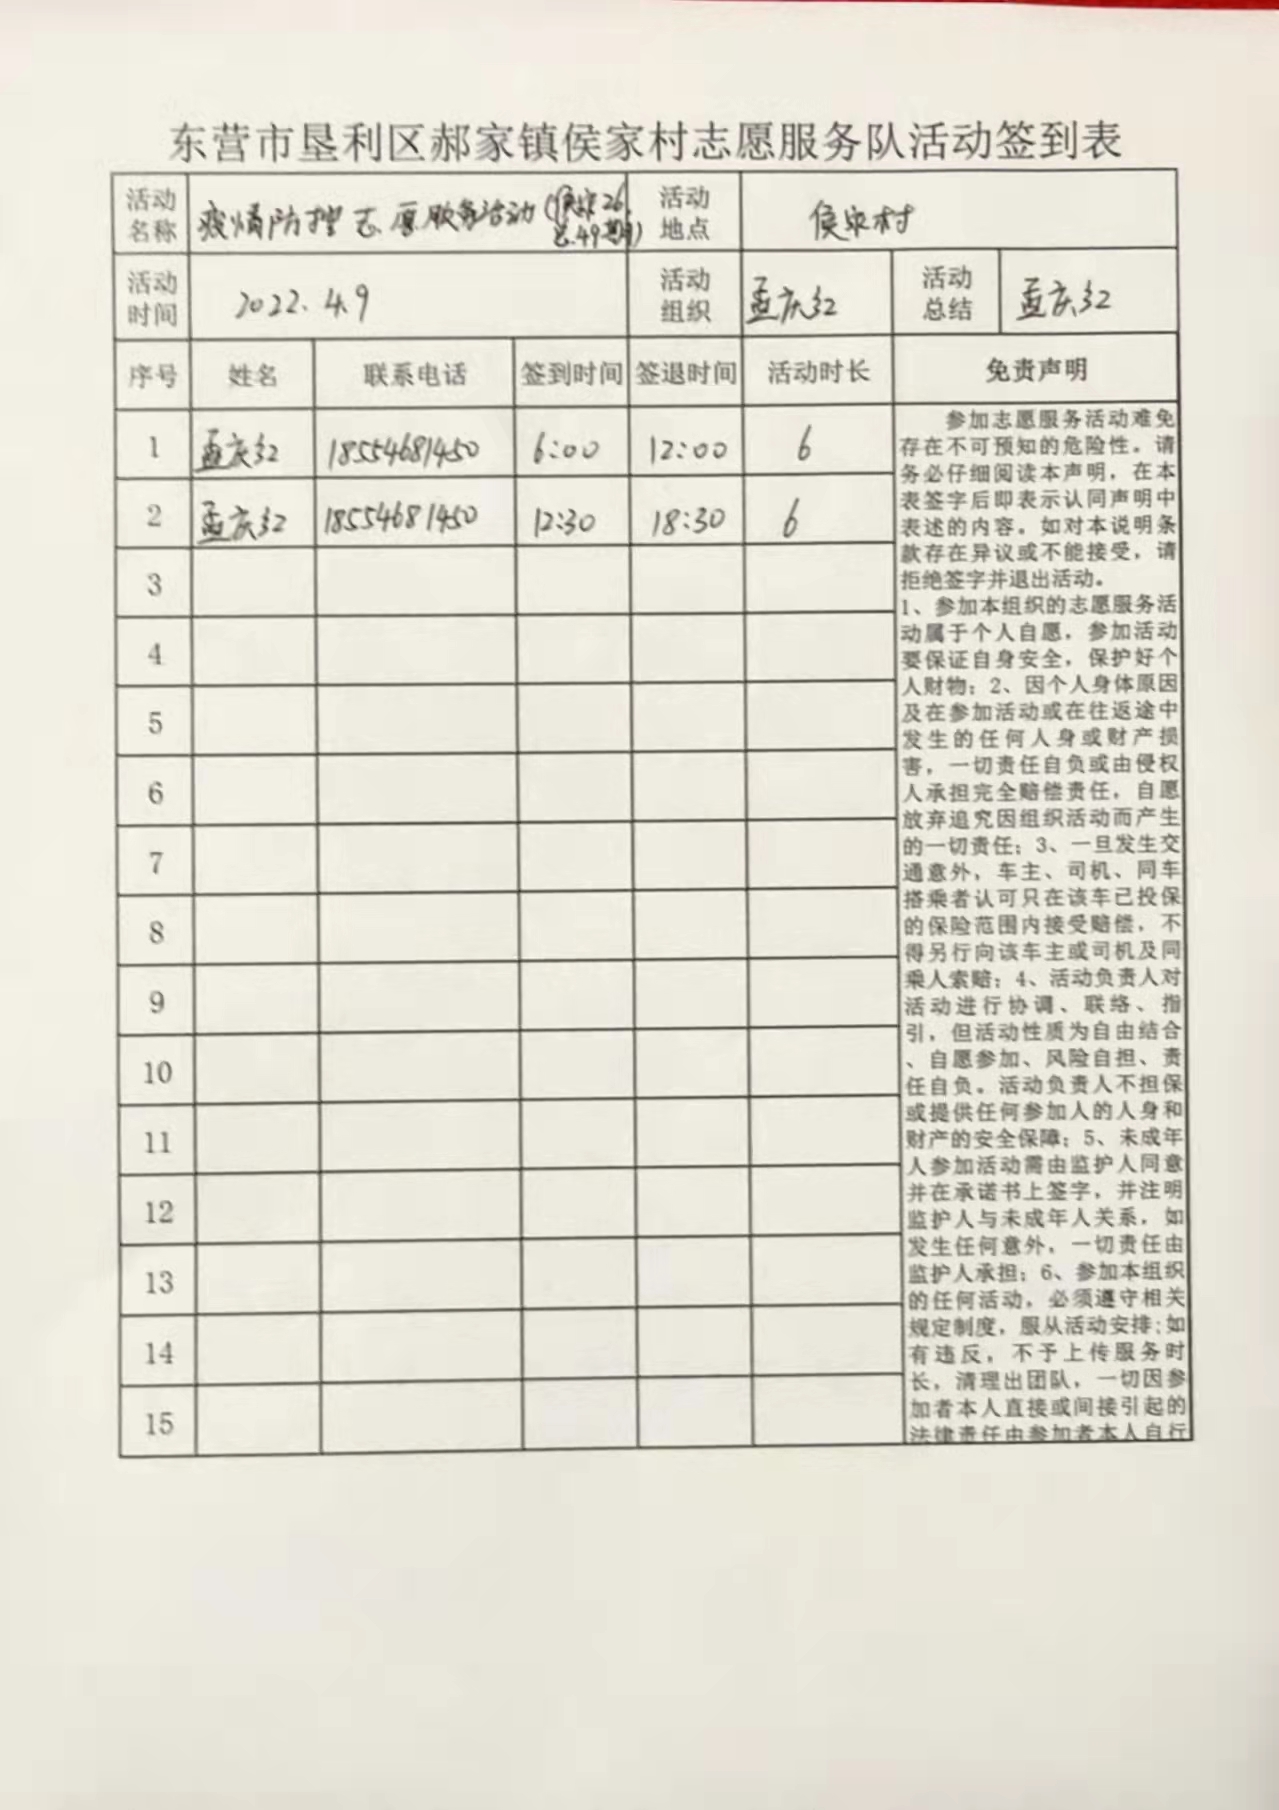 东营市垦利区郝家镇侯家村志愿服务队活动签到表
活动名称 疫情防控志愿服务活动( 26. 总49期) 活动地点 侯家村
活动时间 2022.4.9 活动组织 孟庆红 活动总结 孟庆红
序号 姓名 联系电话 签到时间 签退时间 活动时长 免责声明
1 孟庆红 18554681450 6:00 12:00 6
2 孟庆红 18554681450 12:30 18:30 6
3
4
5
6
7
8
9
10
11
12
13
14
15
参加志愿服务活动难免
存在不可预知的危险性。请
务必仔细阅读本声明，在本
表签字后即表示认同声明中
表述的内容。如对本说明条
款存在异议或不能接受，请
拒绝签字并退出活动。
1、参加本组织的志愿服务活
动属于个人自愿，参加活动
要保证自身安全，保护好个
人财物；2、因个人身体原因
及在参加活动或在往返途中
发生的任何人身或财产损
害，一切责任自负或由侵权
人承担完全赔偿责任，自愿
放弃追究因组织活动而产生
的一切责任；3、一旦发生交
通意外，车主、司机、同车
搭乘者认可只在该车已投保
的保险范围内接受赔偿，不
得另行向该车主或司机及同
乘人索赔；4、活动负责人对
活动进行协调、联络、指
引，但活动性质为自由结合
、自愿参加、风险自担、责
任自负。活动负责人不担保
或提供任何参加人的人身和
财产的安全保障；5、未成年
人参加活动需由监护人同意
并在承诺书上签字，并注明
监护人与未成年人关系，如
发生任何意外，一切责任由
监护人承担；6、参加本组织
的任何活动，必须遵守相关
规定制度，服从活动安排；如
有违反，不予上传服务时
长，清理出团队，一切因参
加者本人直接或间接引起的
法律责任由参加者本人自行